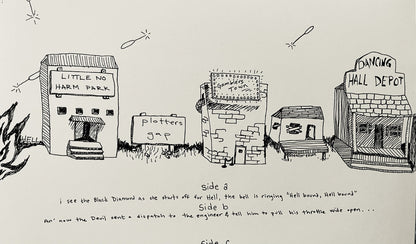 LITTLE NO
HARM PARK
plotters
gap
DANCING
HALL DEPOT
HELL
side a
i see the Black Diamond as she starts off for Hell, the bell is ringing "Hell bound, Hell bound"
Side b
An' now the Devil sent a dispatch to the engineer & tell him to pull his throttle wide open...
side c